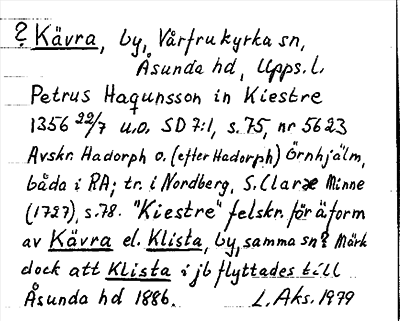 ? Kävra, by, Vårfrukyrka sn,
Åsunda hd, Upps. l.
Petrus Haqunsson in Kiestre
1356 22/7 u.o. SD 7:1, s. 75, nr 5623
Avskr. Hadorph o. (efter Hadorph) Örnhjälm,
båda i RA; tr. i Nordberg, S. Claræ Minne
(1727), s. 78. "Kiestre" felskr. för äform
av Kävra el. Klista, by, samma sn? Märk
dock att Klista i jb flyttades till
Åsunda hd 1886. L. Aks. 1979